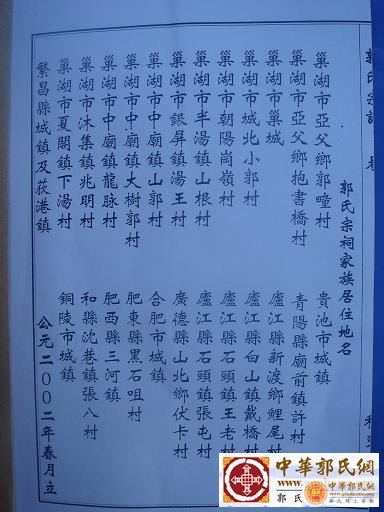 郭氏宗譜 卷
郭氏宗祠家族居住地名
巢湖市亞父鄉郭疃村 貴池市城鎮
巢湖市亞父鄉抱書橋村 青陽縣廟前鎮許村
巢湖市巢城 廬江縣新渡鄉鯉尾村
巢湖市城北小郭村 廬江縣白山鎮戴橋村
巢湖市朝陽崗嶺村 廬江縣石頭鎮王老村
巢湖市半湯鎮山根村 廬江縣石頭鎮張屯村
巢湖市銀屏鎮湯王村 廣德縣山北鄉伏卡村
巢湖市中廟鎮山郭村 合肥市城鎮
巢湖市中廟鎮大樹郭村 肥東縣黑石咀村
巢湖市中廟鎮龍脉村 肥西縣三河鎮
巢湖市沐集鎮兆明村 和縣沈巷鎮張八村
巢湖市夏閣鎮下湯村 銅陵市城鎮
繁昌縣城鎮及荻港鎮 公元二00二年春月立
中華郭氏網